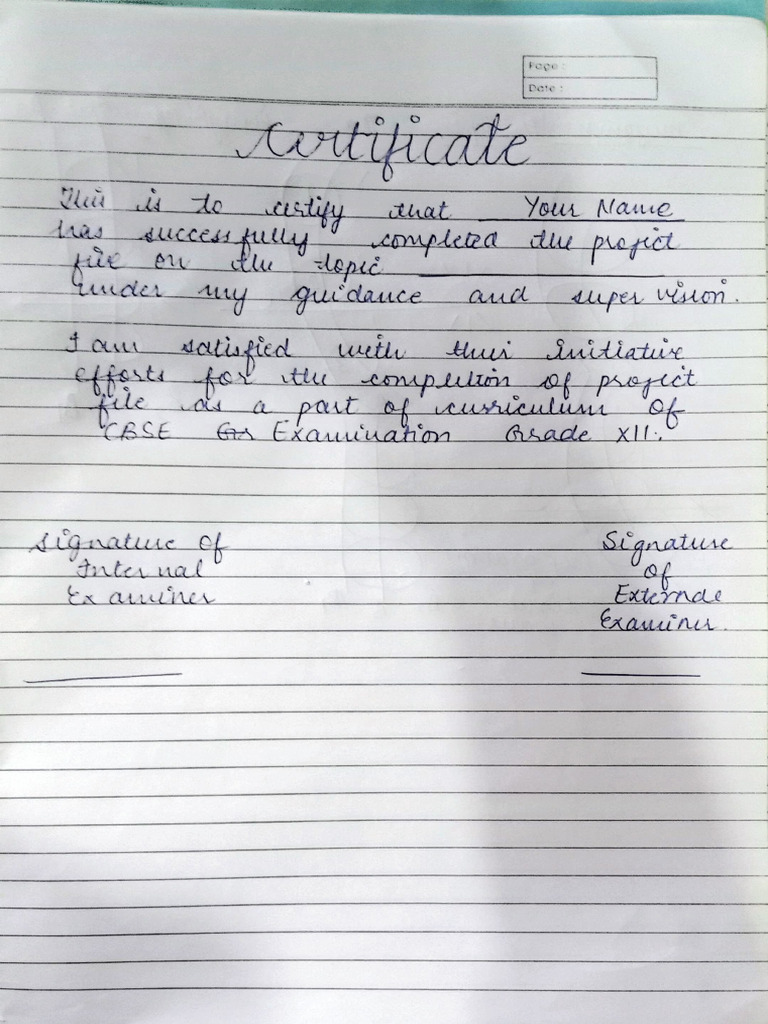 Page :
Date :
Certificate
This is to certify that Your Name
has successfully completed the project
file on the topic
under my guidance and supervision.
I am satisfied with their initiative
efforts for the completion of project
file as a part of curriculum of
CBSE Examination Grade XII.
Signature of
Internal
Examiner
Signature
of
External
Examiner.